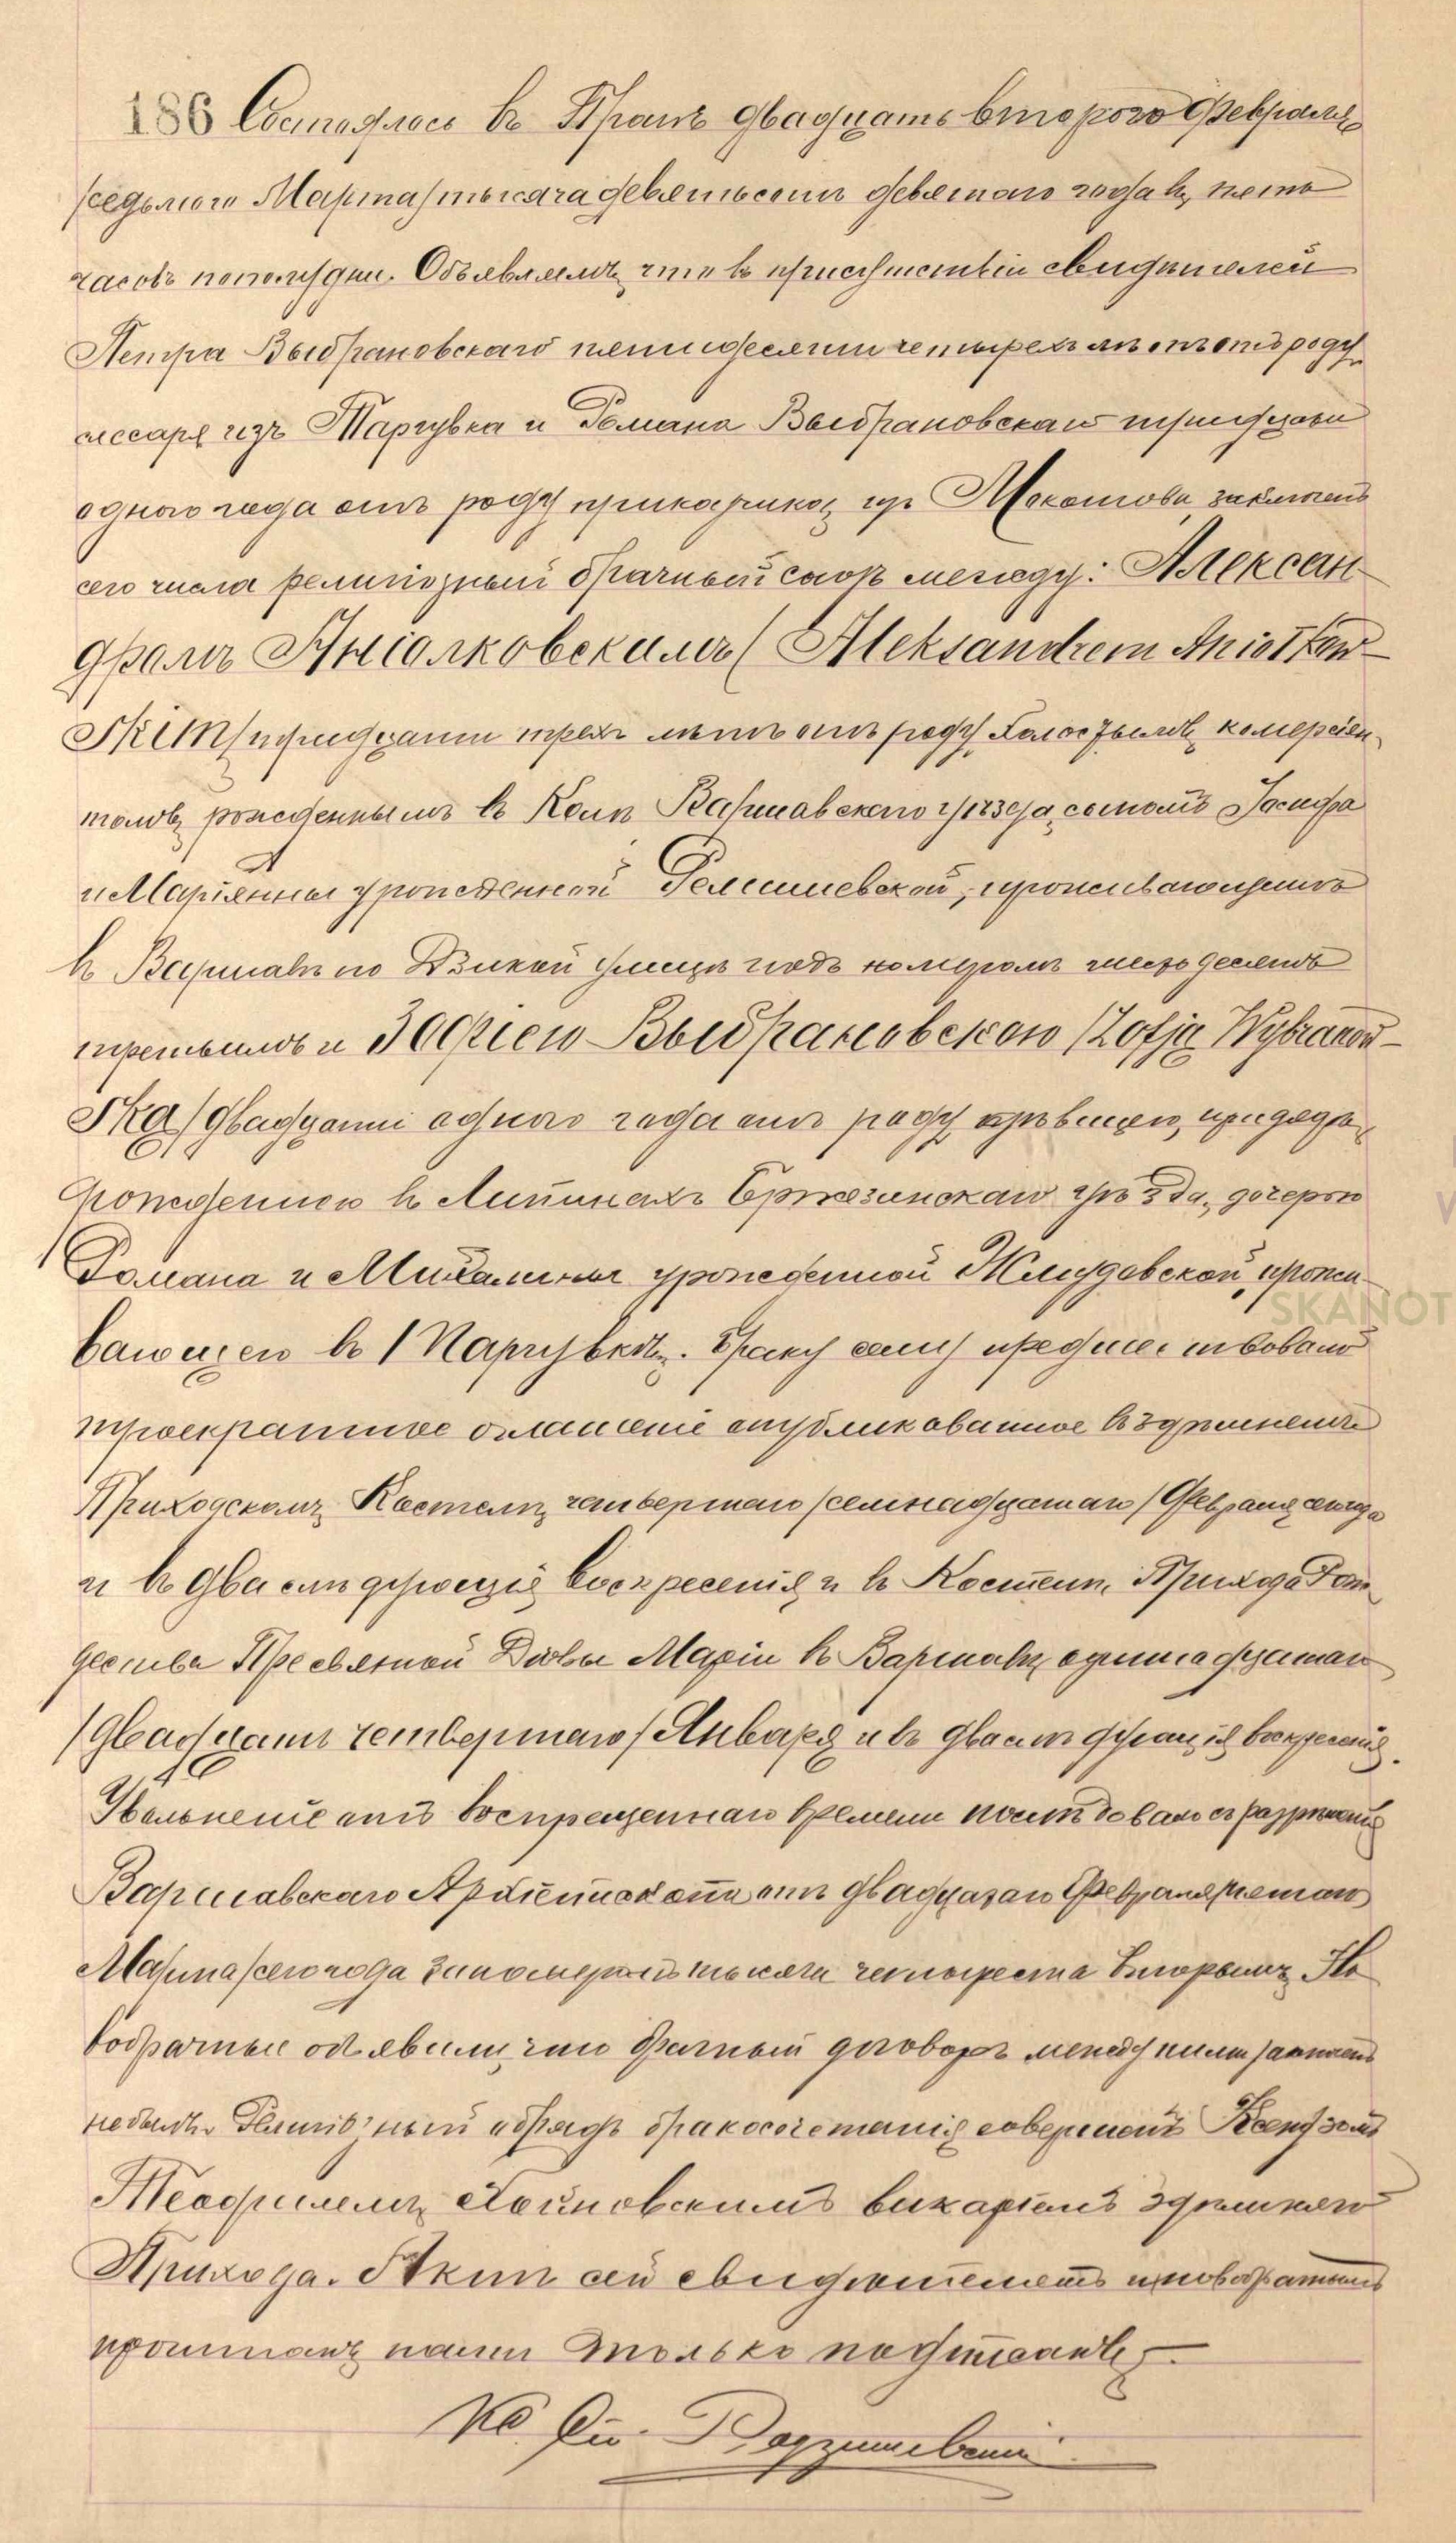 186 Состоялось въ Прагѣ двадцать второго Февраля
/седьмого Марта/ тысяча девятьсотъ девятаго года въ пять
часовъ пополудни. Объявляемъ что въ присутствіи свидѣтелей
Петра Выбрановскаго пятидесяти четырехъ лѣтъ отъ роду
слесаря изъ Таргувка и Романа Выбрановскаго тридцати
одного года отъ роду прикащика изъ Мокотова заключенъ
сего числа религіозный брачный союзъ между: Алексан-
дромъ Аніолковскимъ (Aleksandrem Aniołkow-
skim/ тридцати трехъ лѣтъ отъ роду холостымъ,
рожденнымъ въ Варшавскаго уѣзда, сыномъ Іосифа
и Маріанны урожденной проживающимъ
въ Варшавѣ по Дзикой улицѣ подъ номеромъ шестьдесятъ
третьимъ и Зофіею Выбрановскою /Zofją Wybranow-
ską/ двадцати одного года отъ роду дѣвицею,
рожденною въ Липинахъ Брезинскаго уѣзда, дочерью
Романа и Михалины урожденной Жмудовской, прожи-
вающею въ Таргувкѣ. Браку сему предшествовало
троекратное оглашеніе опубликованное въ здѣшнемъ
Приходскомъ Костелѣ, четвертаго /семнадцатаго/ Февраля
и въ два слѣдующія воскресенія и въ Костелѣ Прихода Рож-
дества Пресвятой Дѣвы Маріи въ Варшавѣ одиннадцатаго
/двадцать четвертаго/ Января и въ два слѣдующія воскресенія.
Увольненіе отъ воспрещеннаго времени послѣдовало съ разрѣшенія
Варшавскаго Архіепископа отъ двадцатаго Февраля /пятаго
Марта/ сего года за номеромъ тысяча четыреста вторымъ. Но-
вобрачные объявили, что брачный договоръ между ними заключенъ
не былъ. Религіозный обрядъ бракосочетанія совершенъ Ксендзомъ
Теофилемъ викаріемъ здѣшняго
Прихода. Актъ сей свидѣтелямъ и новобрачнымъ
прочитанъ нами только подписанъ.
Кс.